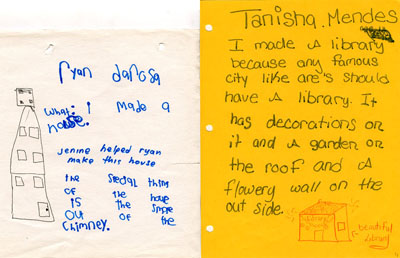 ryan darosa
what: I made a
house.
jenine helped ryan
make this house
the special thim
of the house
is the smoke
out of the
chimney.
Tanisha. Mendes
I made A library
because any famous
city like are's should
have A library. It
has decorations on
it and A garden on
the roof and A
flowery wall on the
out side.
beautiful
library